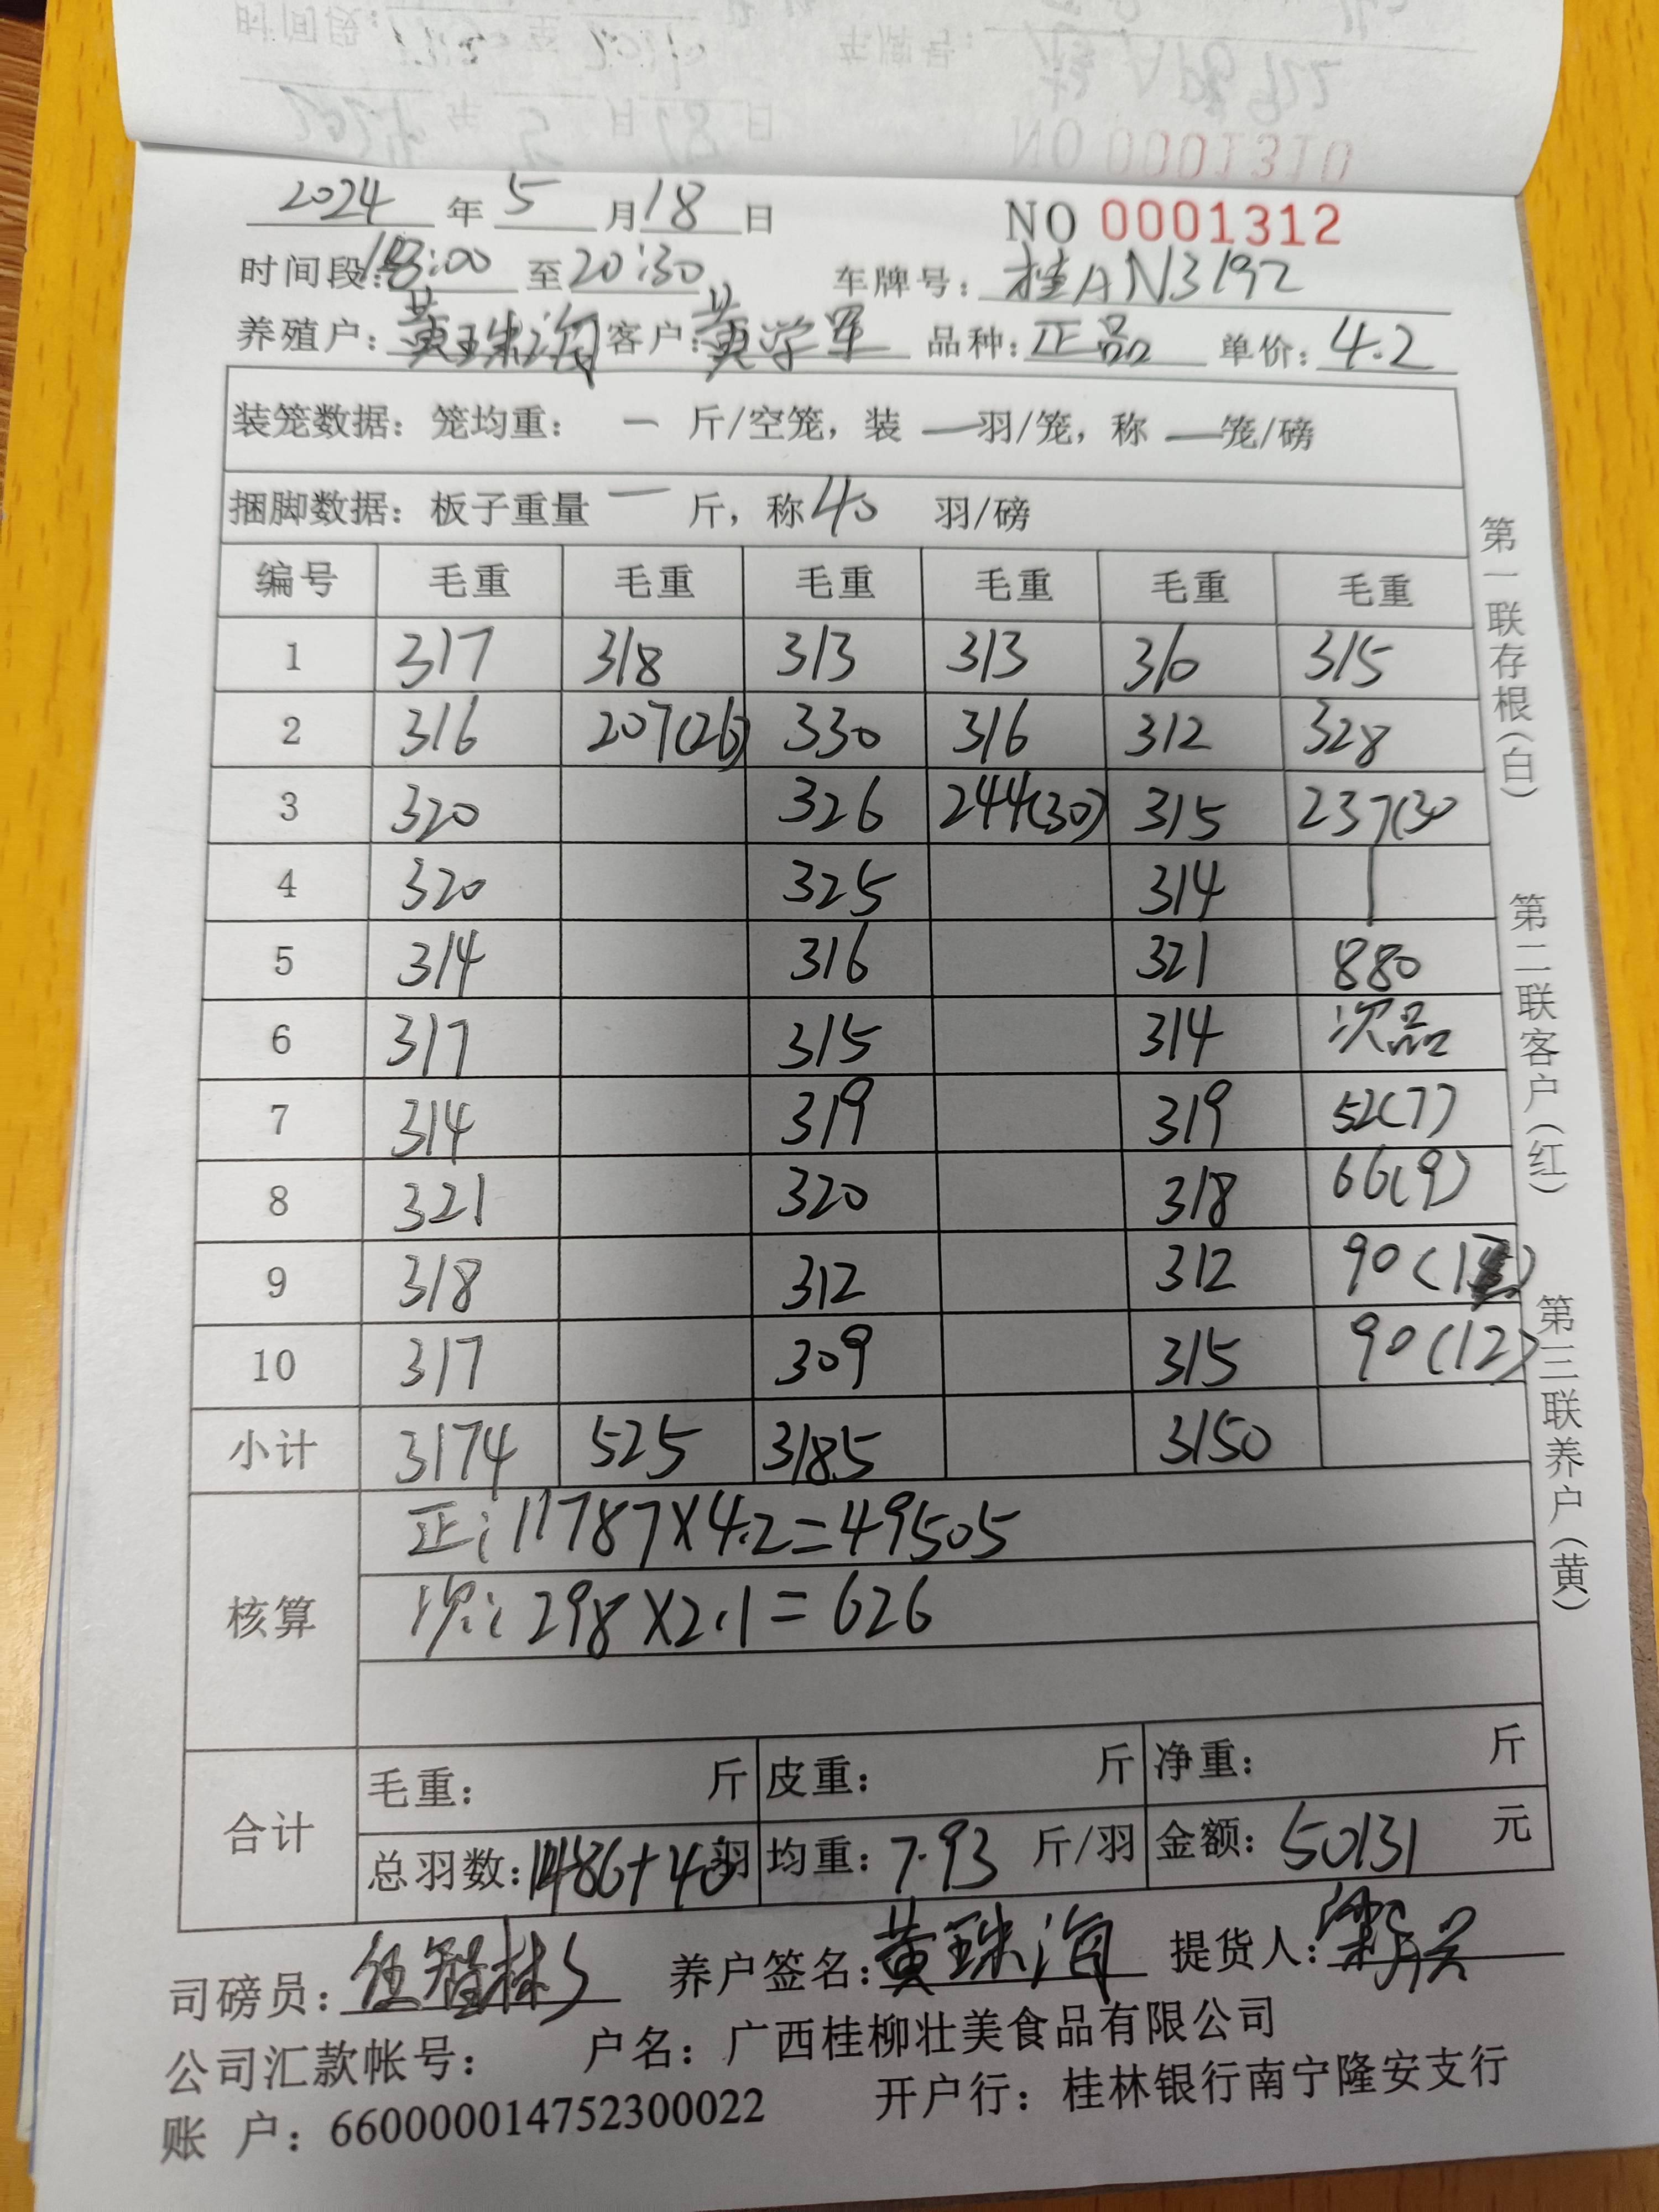 2024 年 5 月 18 日 NO 0001312
时间段: 18:00 至 20:30 车牌号: 桂AN3192
养殖户: 黄珠海 客户: 黄学军 品种: 正品 单价: 4.2
装笼数据: 笼均重: 一 斤/空笼, 装 一 羽/笼, 称 一 笼/磅
捆脚数据: 板子重量 一 斤, 称 40 羽/磅
编号 毛重 毛重 毛重 毛重 毛重 毛重
1 317 318 313 313 310 315
2 316 207(26) 330 316 312 328
3 320 326 244(30) 315 237(30
4 320 325 314
5 314 316 321 880
6 317 315 314 次品
7 314 319 319 52(7)
8 321 320 318 66(9)
9 318 312 312 90(12)
10 317 309 315 90(12)
小计 3174 525 3185 3150
核算 正: 11787×4.2=49505
次: 298×2.1=626
合计 毛重: 斤 皮重: 斤 净重: 斤
总羽数: 1486+40羽 均重: 7.93 斤/羽 金额: 50131 元
司磅员: 养户签名: 黄珠海 提货人:
公司汇款帐号: 户名: 广西桂柳壮美食品有限公司
账 户: 660000014752300022 开户行: 桂林银行南宁隆安支行
第一联存根(白) 第二联客户(红) 第三联养户(黄)
NO 0001310